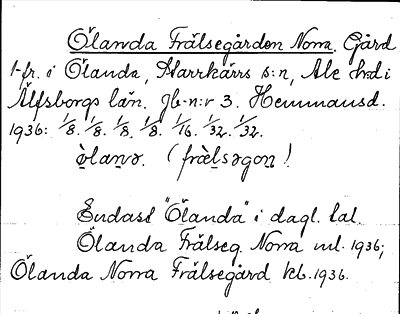 Ölanda Frälsegården Norra. Gård
1 fr. i Ölanda, Starrkärrs s:n, Ale hd i
Älfsborgs län. Jb.n:r 3. Hemmansd.
1936: 1/8. 1/8. 1/8. 1/8. 1/16. 1/32. 1/32.
Endast "Ölanda" i dagl. tal.
Ölanda Frälseg. Norra ml. 1936;
Ölanda Norra Frälsegård kb. 1936.